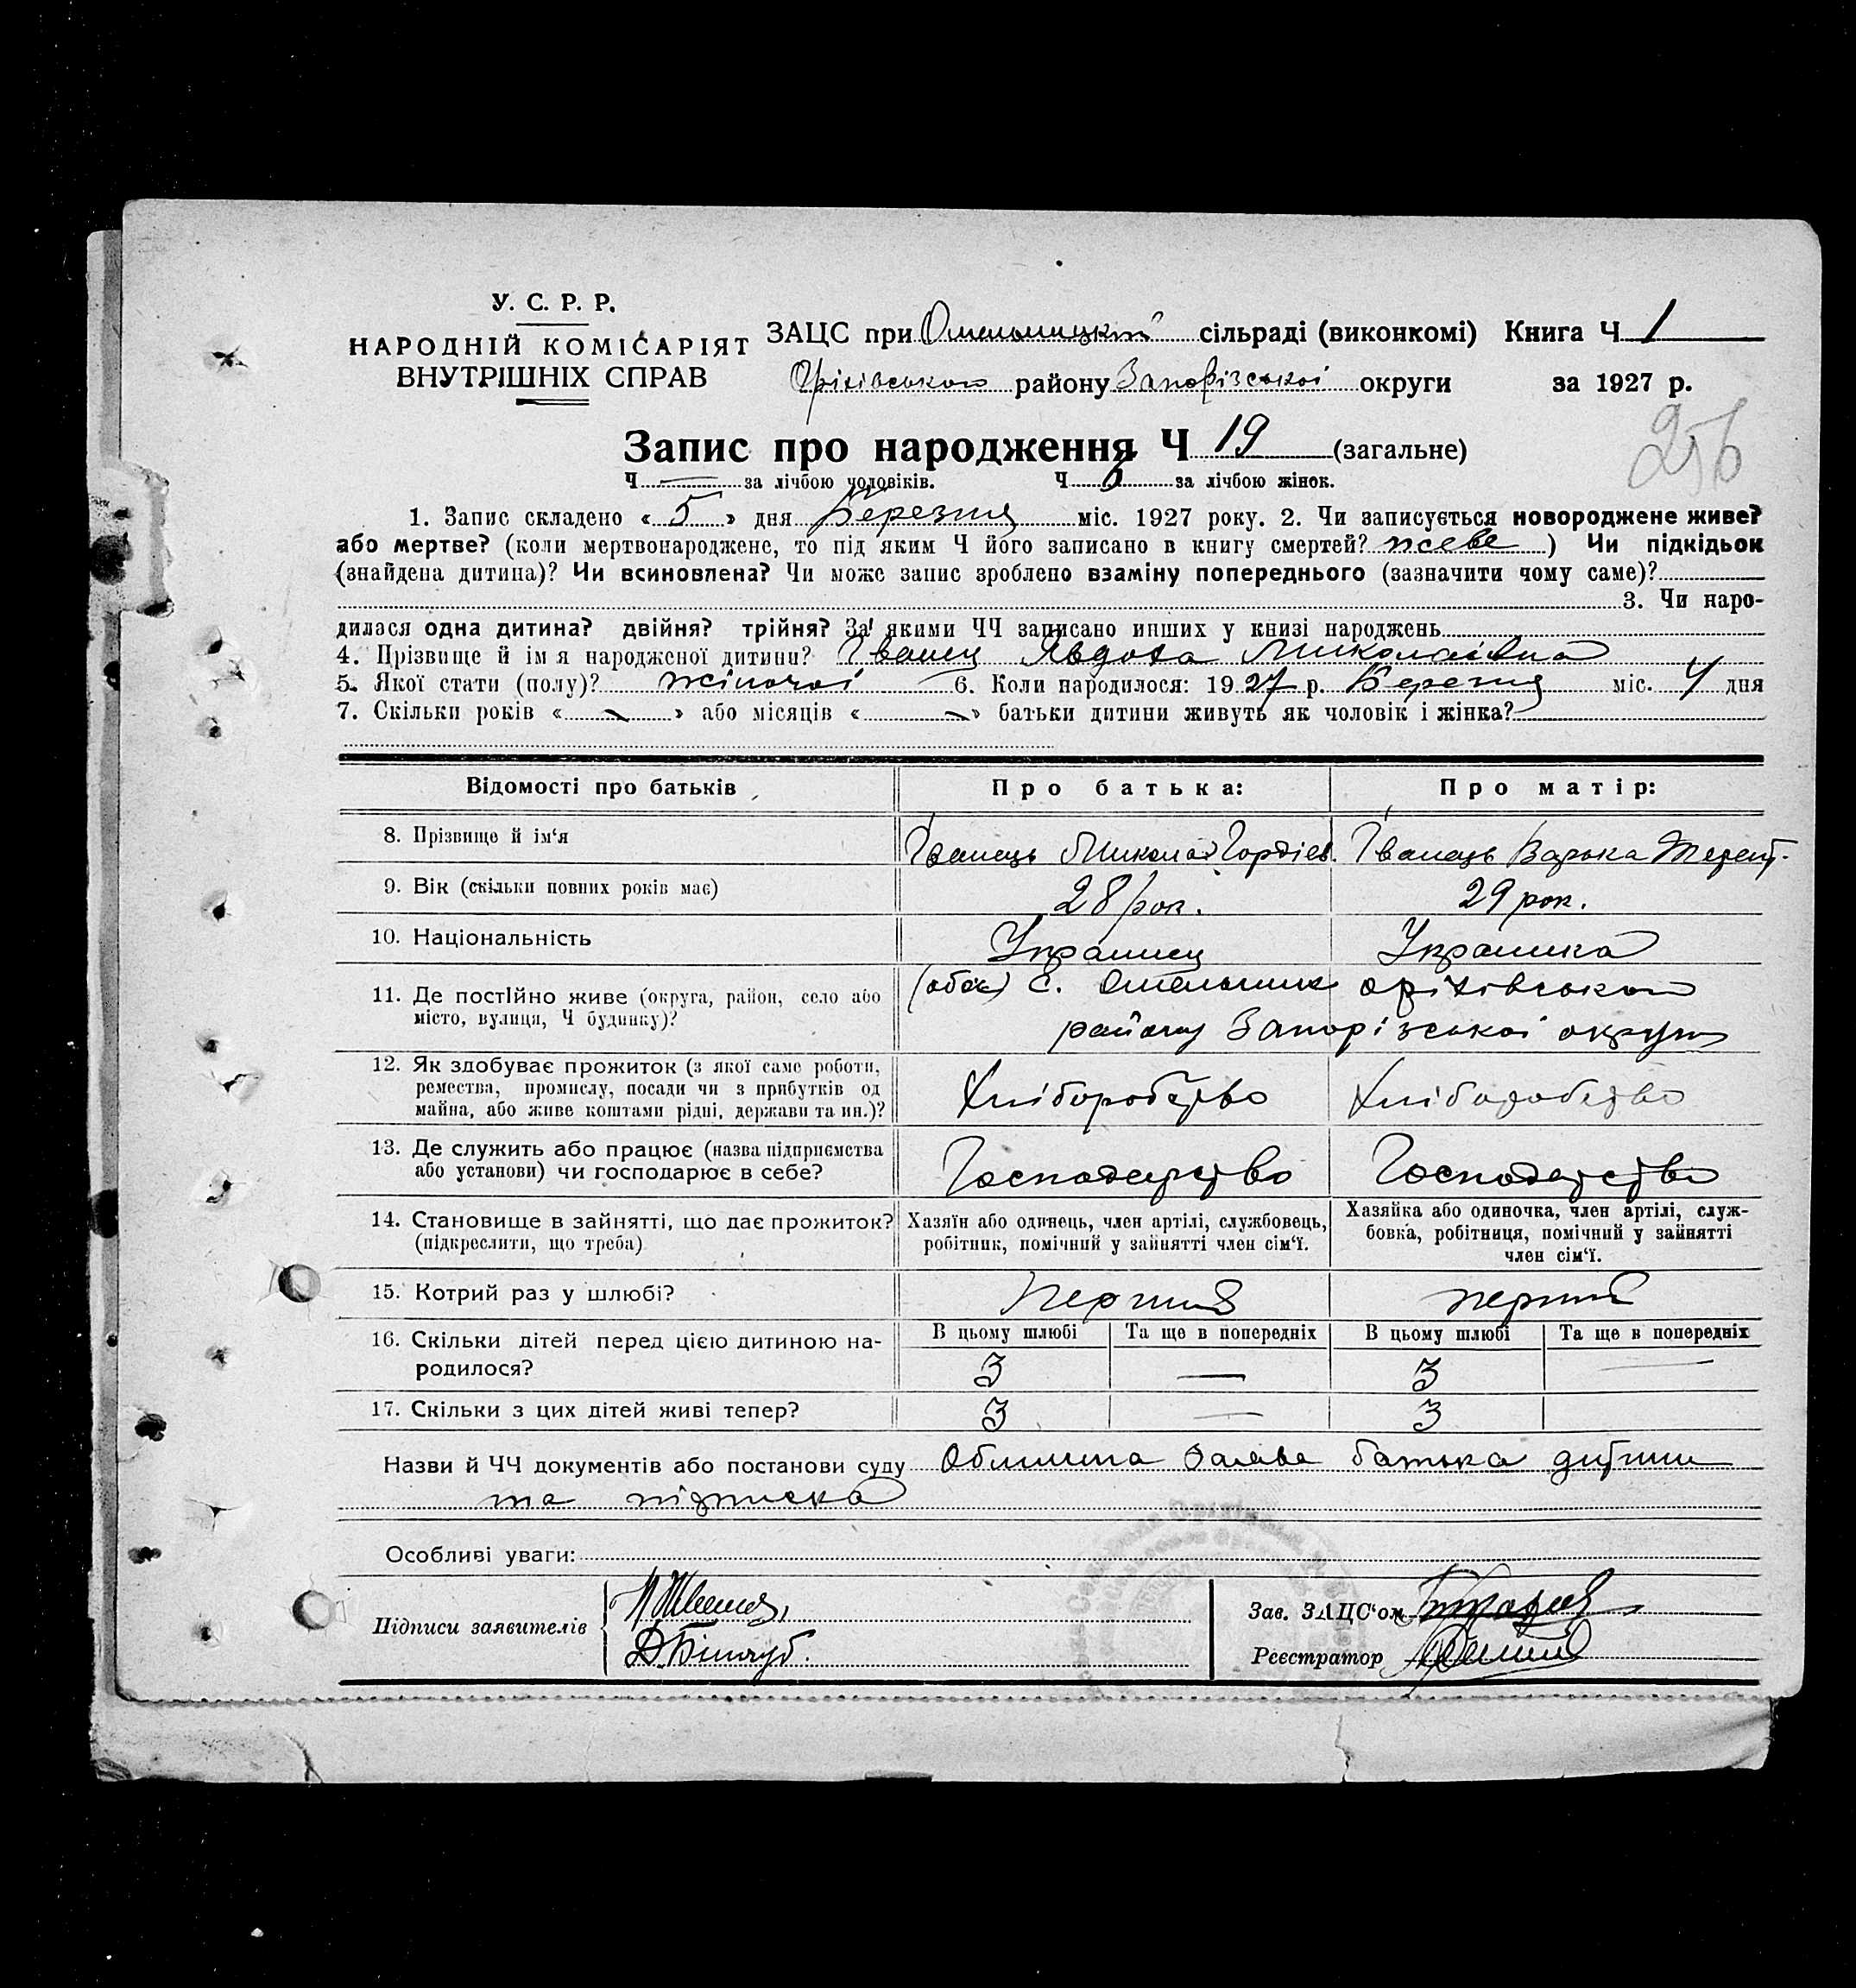 У. С. Р. Р.
НАРОДНІЙ КОМІСАРІЯТ
ВНУТРІШНІХ СПРАВ
ЗАЦС при Омельницкій сільраді (виконкомі) Книга Ч 1
Оріхівського району Запорізської округи за 1927 р.
256
Запис про народження Ч 19 (загальне)
Ч — за лічбою чоловіків. Ч за лічбою жінок.
1. Запис складено « 5 » дня Березня міс. 1927 року. 2. Чи записується новороджене живе?
або мертве? (коли мертвонароджене, то під яким Ч його записано в книгу смертей? живе ) Чи підкідьок
(знайдена дитина)? Чи всиновлена? Чи може запис зроблено взаміну попереднього (зазначити чому саме)?
3. Чи наро-
дилася одна дитина? двійня? трійня? За якими ЧЧ записано инших у книзі народжень
4. Прізвище й імя народженої дитини? Іванец Явдоха Миколаівна
5. Якої стати (полу)? жіночоі 6. Коли народилося: 1927 р. Березня міс. 4 дня
7. Скільки років « — » або місяців « — » батьки дитини живуть як чоловік і жінка?
Відомості про батьків Про батька: Про матір:
8. Прізвище й ім‘я Іванець Микола Гордіев. Іванець Варька Терент.
9. Вік (скільки повних років має) 28 рок. 29 рок.
10. Національність Украинец Украинка
11. Де постійно живе (округа, район, село або (обоє) с. Омельник Оріхівського
місто, вулиця, Ч будинку)? району Запорізськоі округи
12. Як здобуває прожиток (з якої саме роботи,
ремества, промислу, посади чи з прибутків од Хліборобство Хліборобство
майна, або живе коштами рідні, держави та ин.)?
13. Де служить або працює (назва підприємства
або установи) чи господарює в себе? Господарство Господарство
14. Становище в зайнятті, що дає прожиток? Хазяїн або одинець, член артілі, службовець, Хазяйка або одиночка, член артілі, служ-
(підкреслити, що треба) робітник, помічний у зайнятті член сім‘ї. бовка, робітниця, помічний у зайнятті
член сім‘ї.
15. Котрий раз у шлюбі? перший перший
16. Скільки дітей перед цією дитиною на- В цьому шлюбі Та ще в попередніх В цьому шлюбі Та ще в попередніх
родилося? 3 — 3 —
17. Скільки з цих дітей живі тепер? 3 — 3
Назви й ЧЧ документів або постанови суду заява батька дитини
та підписка
Особливі уваги:
Підписи заявителів
Зав. ЗАЦС‘ом
Реєстратор